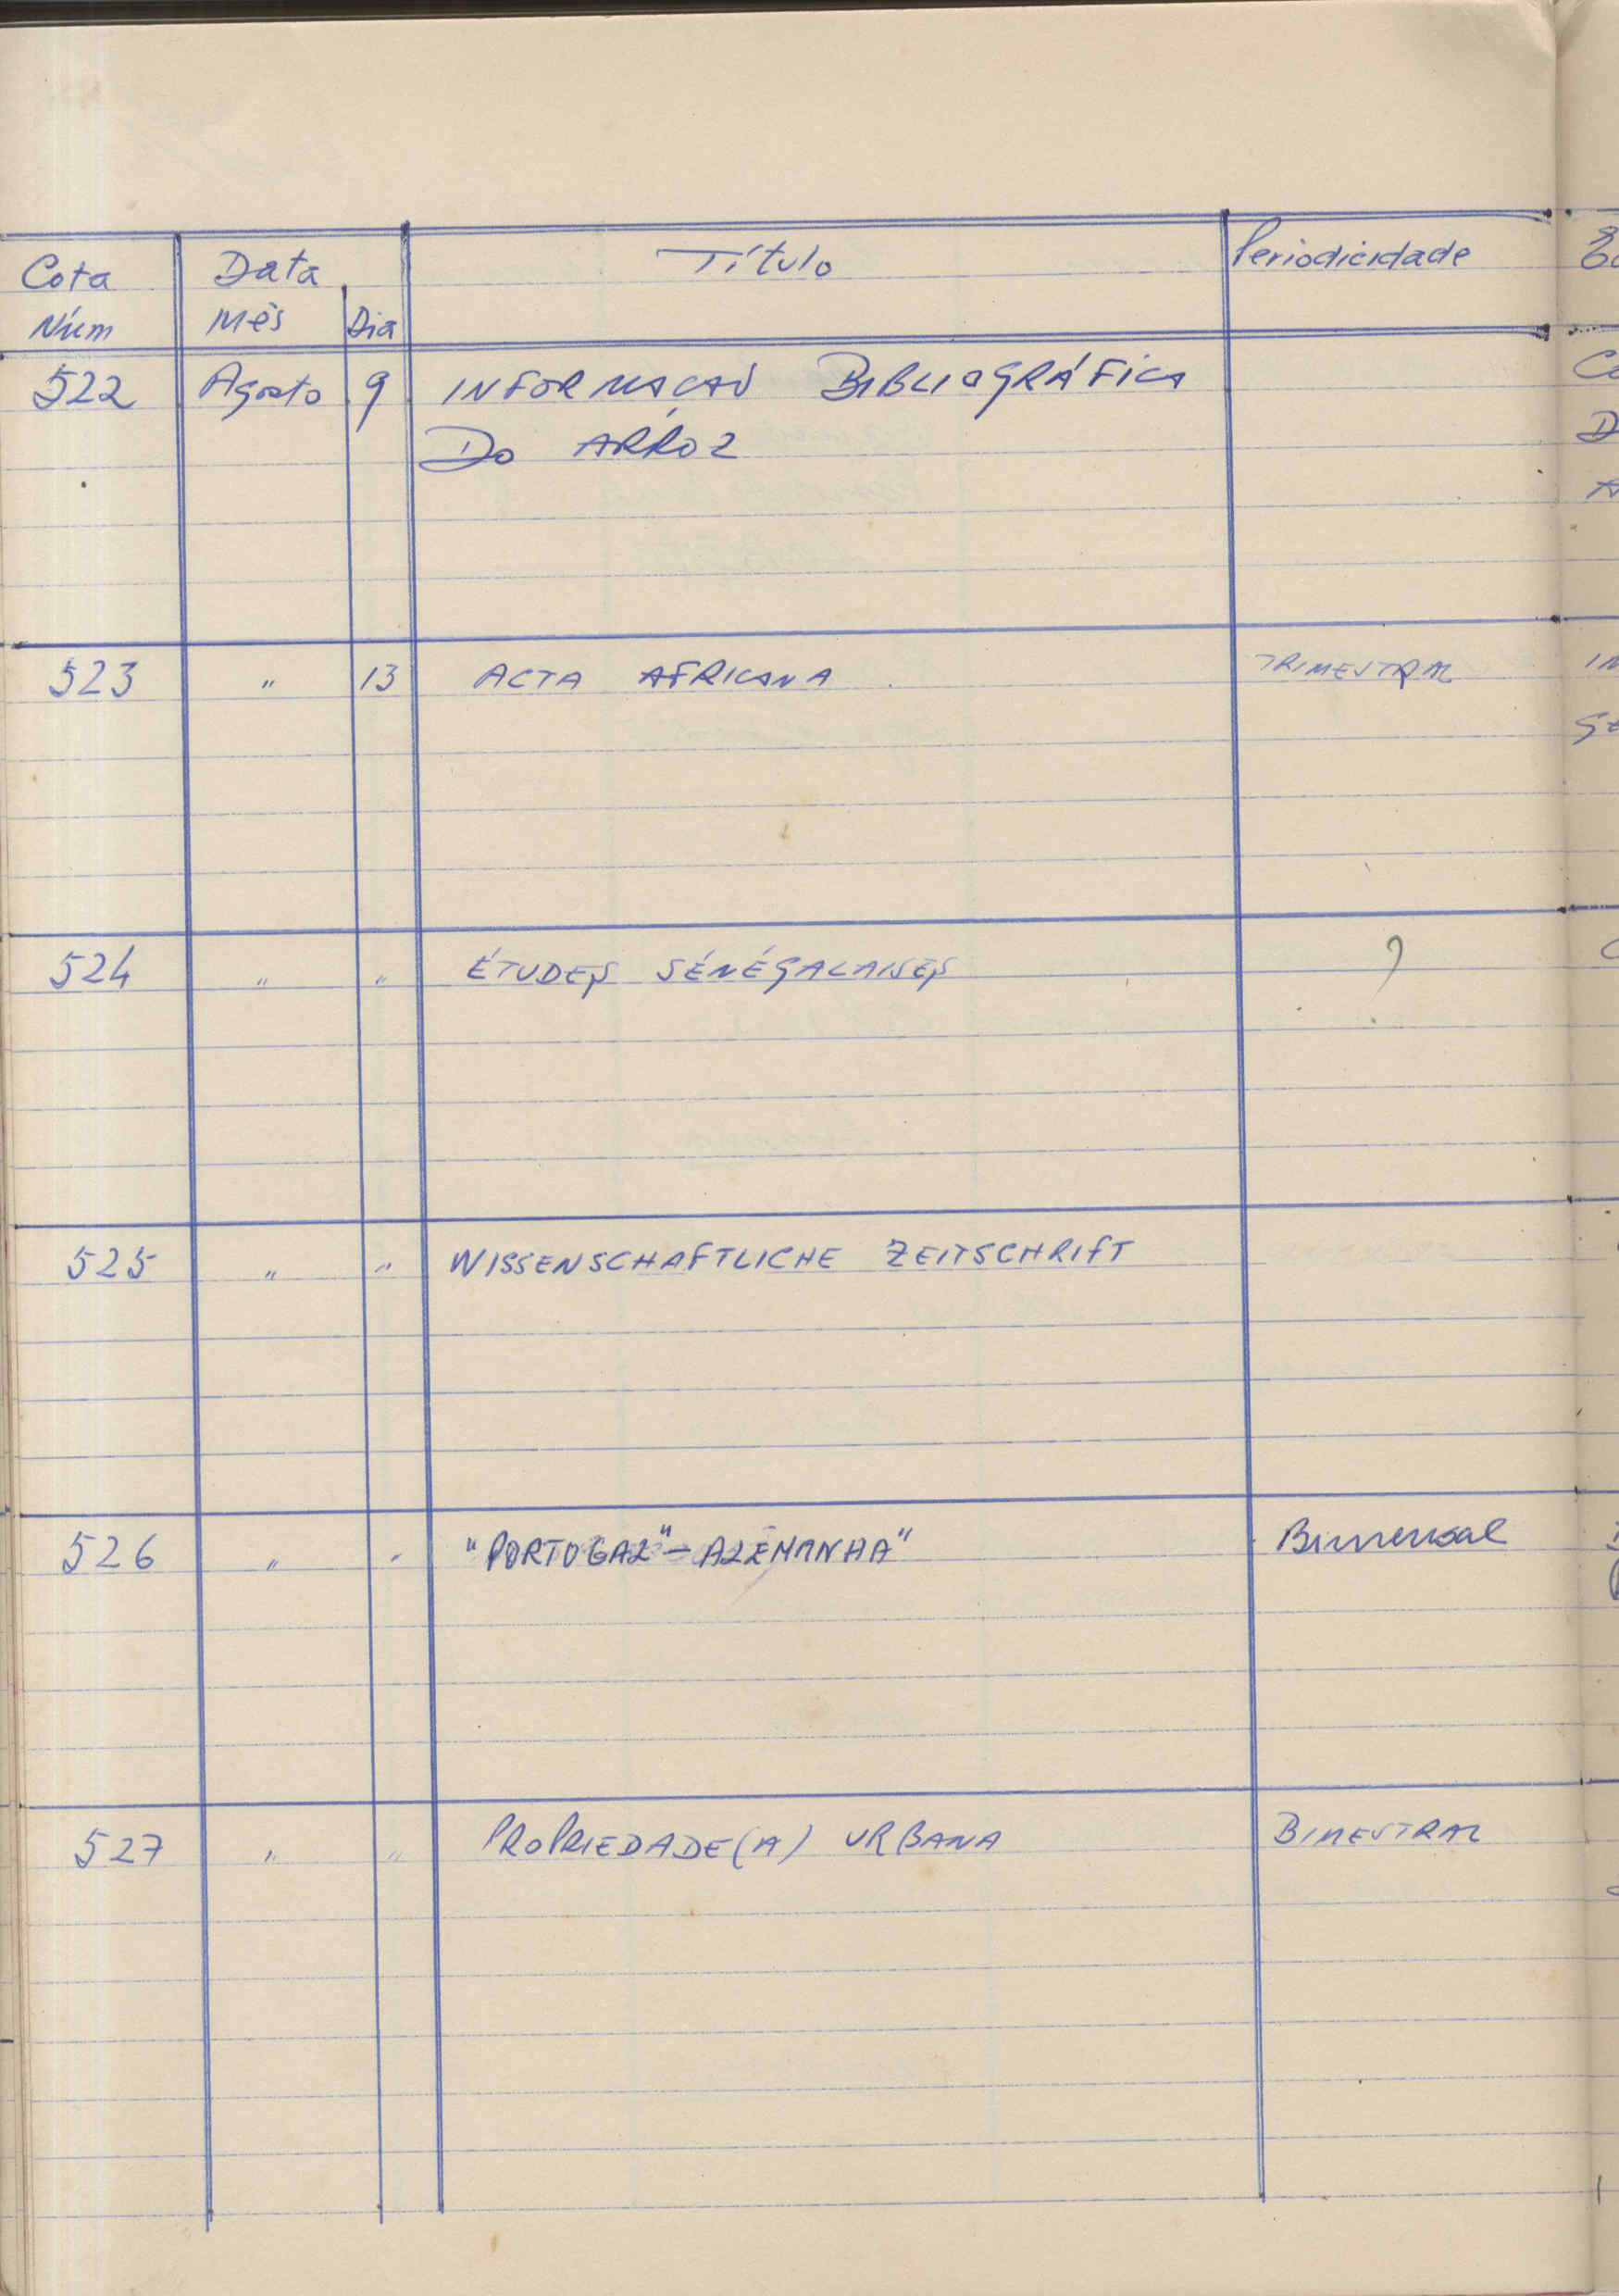 Cota Data Título Periodicidade
Núm Mês Dia
522 Agosto 9 INFORMAÇAO BIBLIOGRÁFICA
DO ARROZ
523 " 13 ACTA AFRICANA TRIMESTRAL
524 " " ÉTUDES SÉNÉGALAISES ?
525 " " WISSENSCHAFTLICHE ZEITSCHRIFT
526 " " "PORTOGAL"-ALEMANHA" Bimensal
527 " " PROPRIEDADE(A) URBANA BIMESTRAL